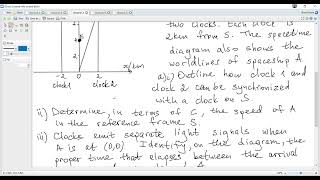 two clocks. Each clock is
2km from S. The spacetime
diagram also shows the
worldlines of spaceship A
a) i) Outline how clock 1 and
clock 2 can be synchronized
with a clock on S.
2
S
x/km
-2 0 2
clock 1 clock 2
ii) Determine, in terms of c, the speed of A
in the reference frame S.
iii) Clocks emit separate light signals when
A is at (0,0) Identify, on the diagram, the
proper time that elapses between the arrival